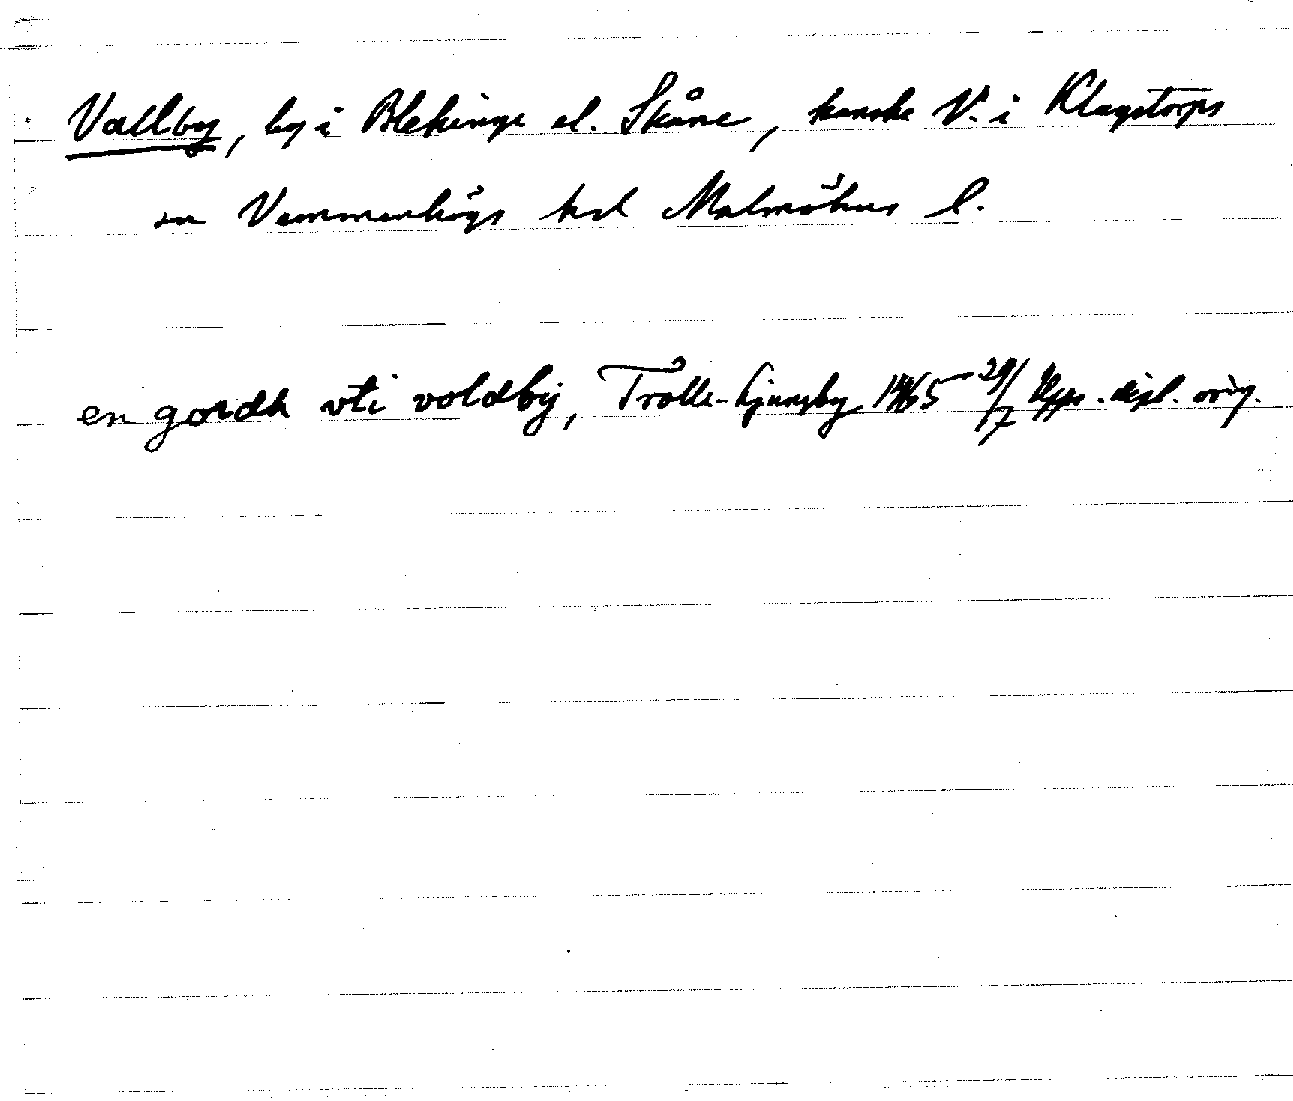 Vallby, by i Blekinge el. Skåne, kanske V. i Klagstorps
sn Vemmenhögs hd Malmöhus l.
en gordh vti voldby, Trolle-Ljungby 1465 29/7 Upps. dipl. orig.